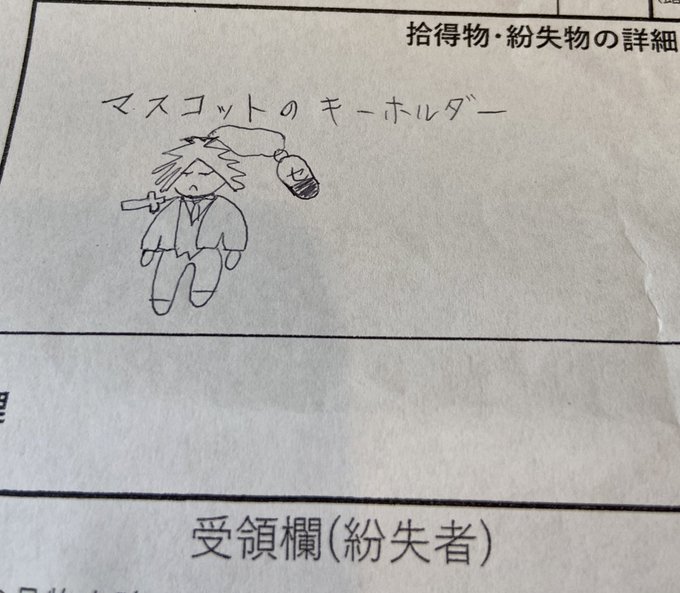 拾得物・紛失物の詳細
マスコットのキーホルダー
セ
受領欄(紛失者)